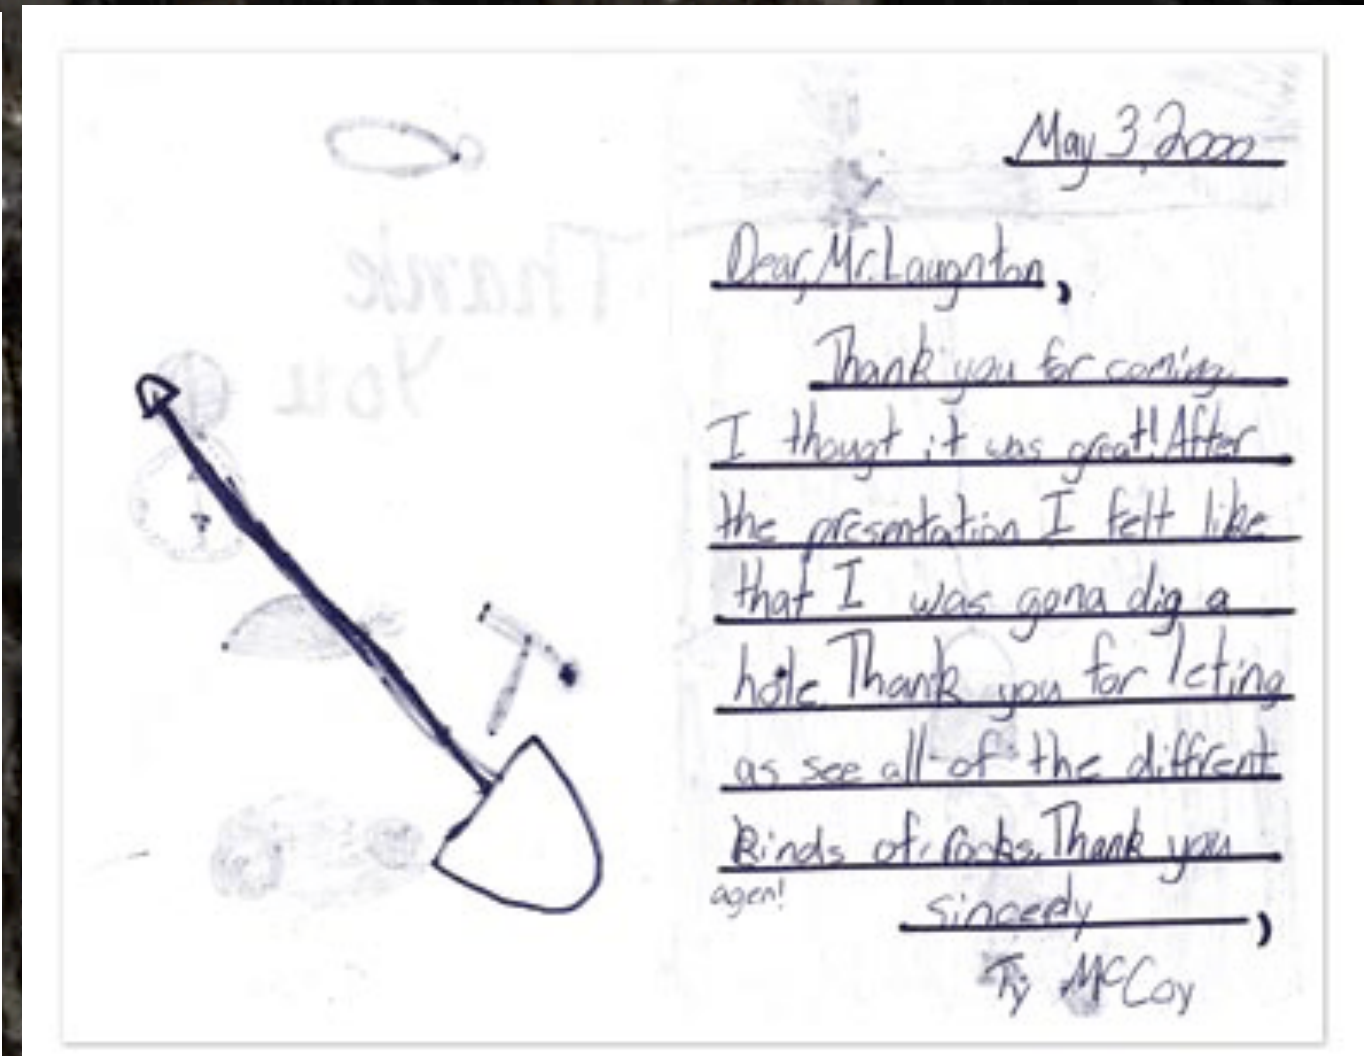 Thank
You
May 3, 2000
Dear, Mr. Laughton,
Thank you for coming.
I thougt it was great! After
the presentation I felt like
that I was gona dig a
hole. Thank you for leting
as see all of the diffrent
kinds of rocks. Thank you
agen!
sincerly,
Ty McCoy